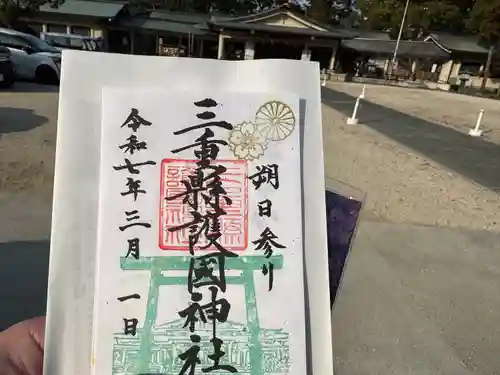 朔日参り
三重縣護国神社
令和七年三月一日